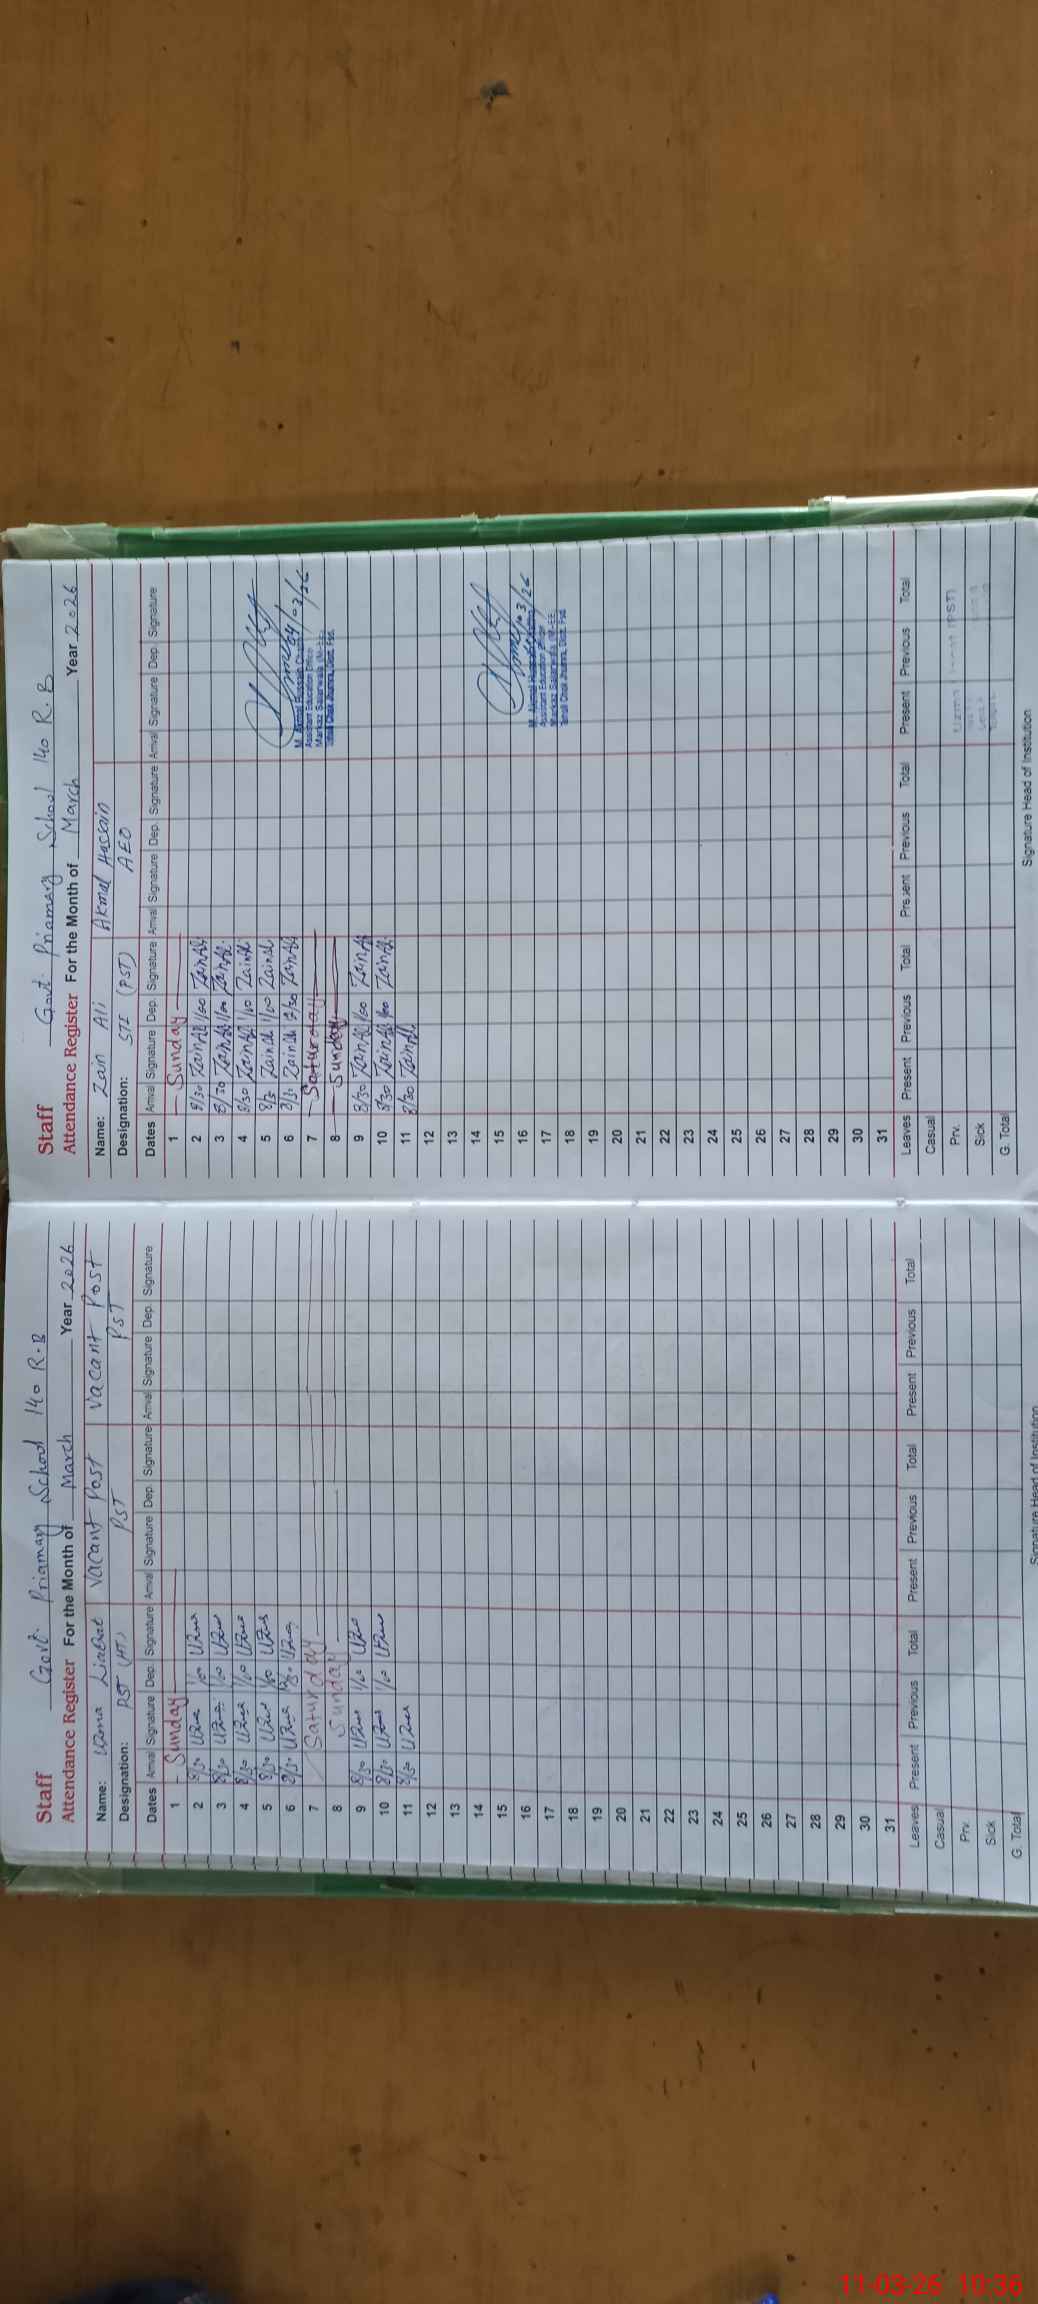 Govt. Priamary School 140 R.B
Staff
Attendance Register For the Month of March Year 2026
Name: Uzma Liaqat Vacant Post Vacant Post
Designation: PST (HT) PST PST
Dates Arrival Signature Dep. Signature Arrival Signature Dep. Signature Arrival Signature Dep. Signature
1 Sunday
2 8/30 Uzma 1/00 Uzma
3 8/30 Uzma 1/00 Uzma
4 8/30 Uzma 1/00 Uzma
5 8/30 Uzma 1/00 Uzma
6 8/30 Uzma 12/30 Uzma
7 Saturday
8 Sunday
9 8/30 Uzma 1/00 Uzma
10 8/30 Uzma 1/00 Uzma
11 8/30 Uzma
12
13
14
15
16
17
18
19
20
21
22
23
24
25
26
27
28
29
30
31
Leaves Present Previous Total Present Previous Total Present Previous Total
Casual
Prv.
Sick
G. Total
Signature Head of Institution
Govt. Priamary School 140 R.B
Staff
Attendance Register For the Month of March Year 2026
Name: Zain Ali Akmal Hussain
Designation: STI (PST) AEO
Dates Arrival Signature Dep. Signature Arrival Signature Dep. Signature Arrival Signature Dep. Signature
1 Sunday
2 8/30 Zain Ali 1/00 Zain Ali
3 8/30 Zain Ali 1/00 Zain Ali
4 8/30 Zain Ali 1/00 Zain Ali
5 8/30 Zain Ali 1/00 Zain Ali
6 8/30 Zain Ali 12/30 Zain Ali
7 Saturday
8 Sunday
9 8/30 Zain Ali 1/00 Zain Ali
10 8/30 Zain Ali 1/00 Zain Ali
11 8/30 Zain Ali
12
13
14
15
16
17
18
19
20
21
22
23
24
25
26
27
28
29
30
31
M. Akmal Hussain
Assistant Education Officer
Markaz Salarwala
Tehsil Chak Jhumra, Distt. Fsd.
M. Akmal Hussain
Assistant Education Officer
Markaz Salarwala
Tehsil Chak Jhumra, Distt. Fsd.
Leaves Present Previous Total Present Previous Total Present Previous Total
Casual
Prv.
Sick
G. Total
Signature Head of Institution
11-03-26 10:36